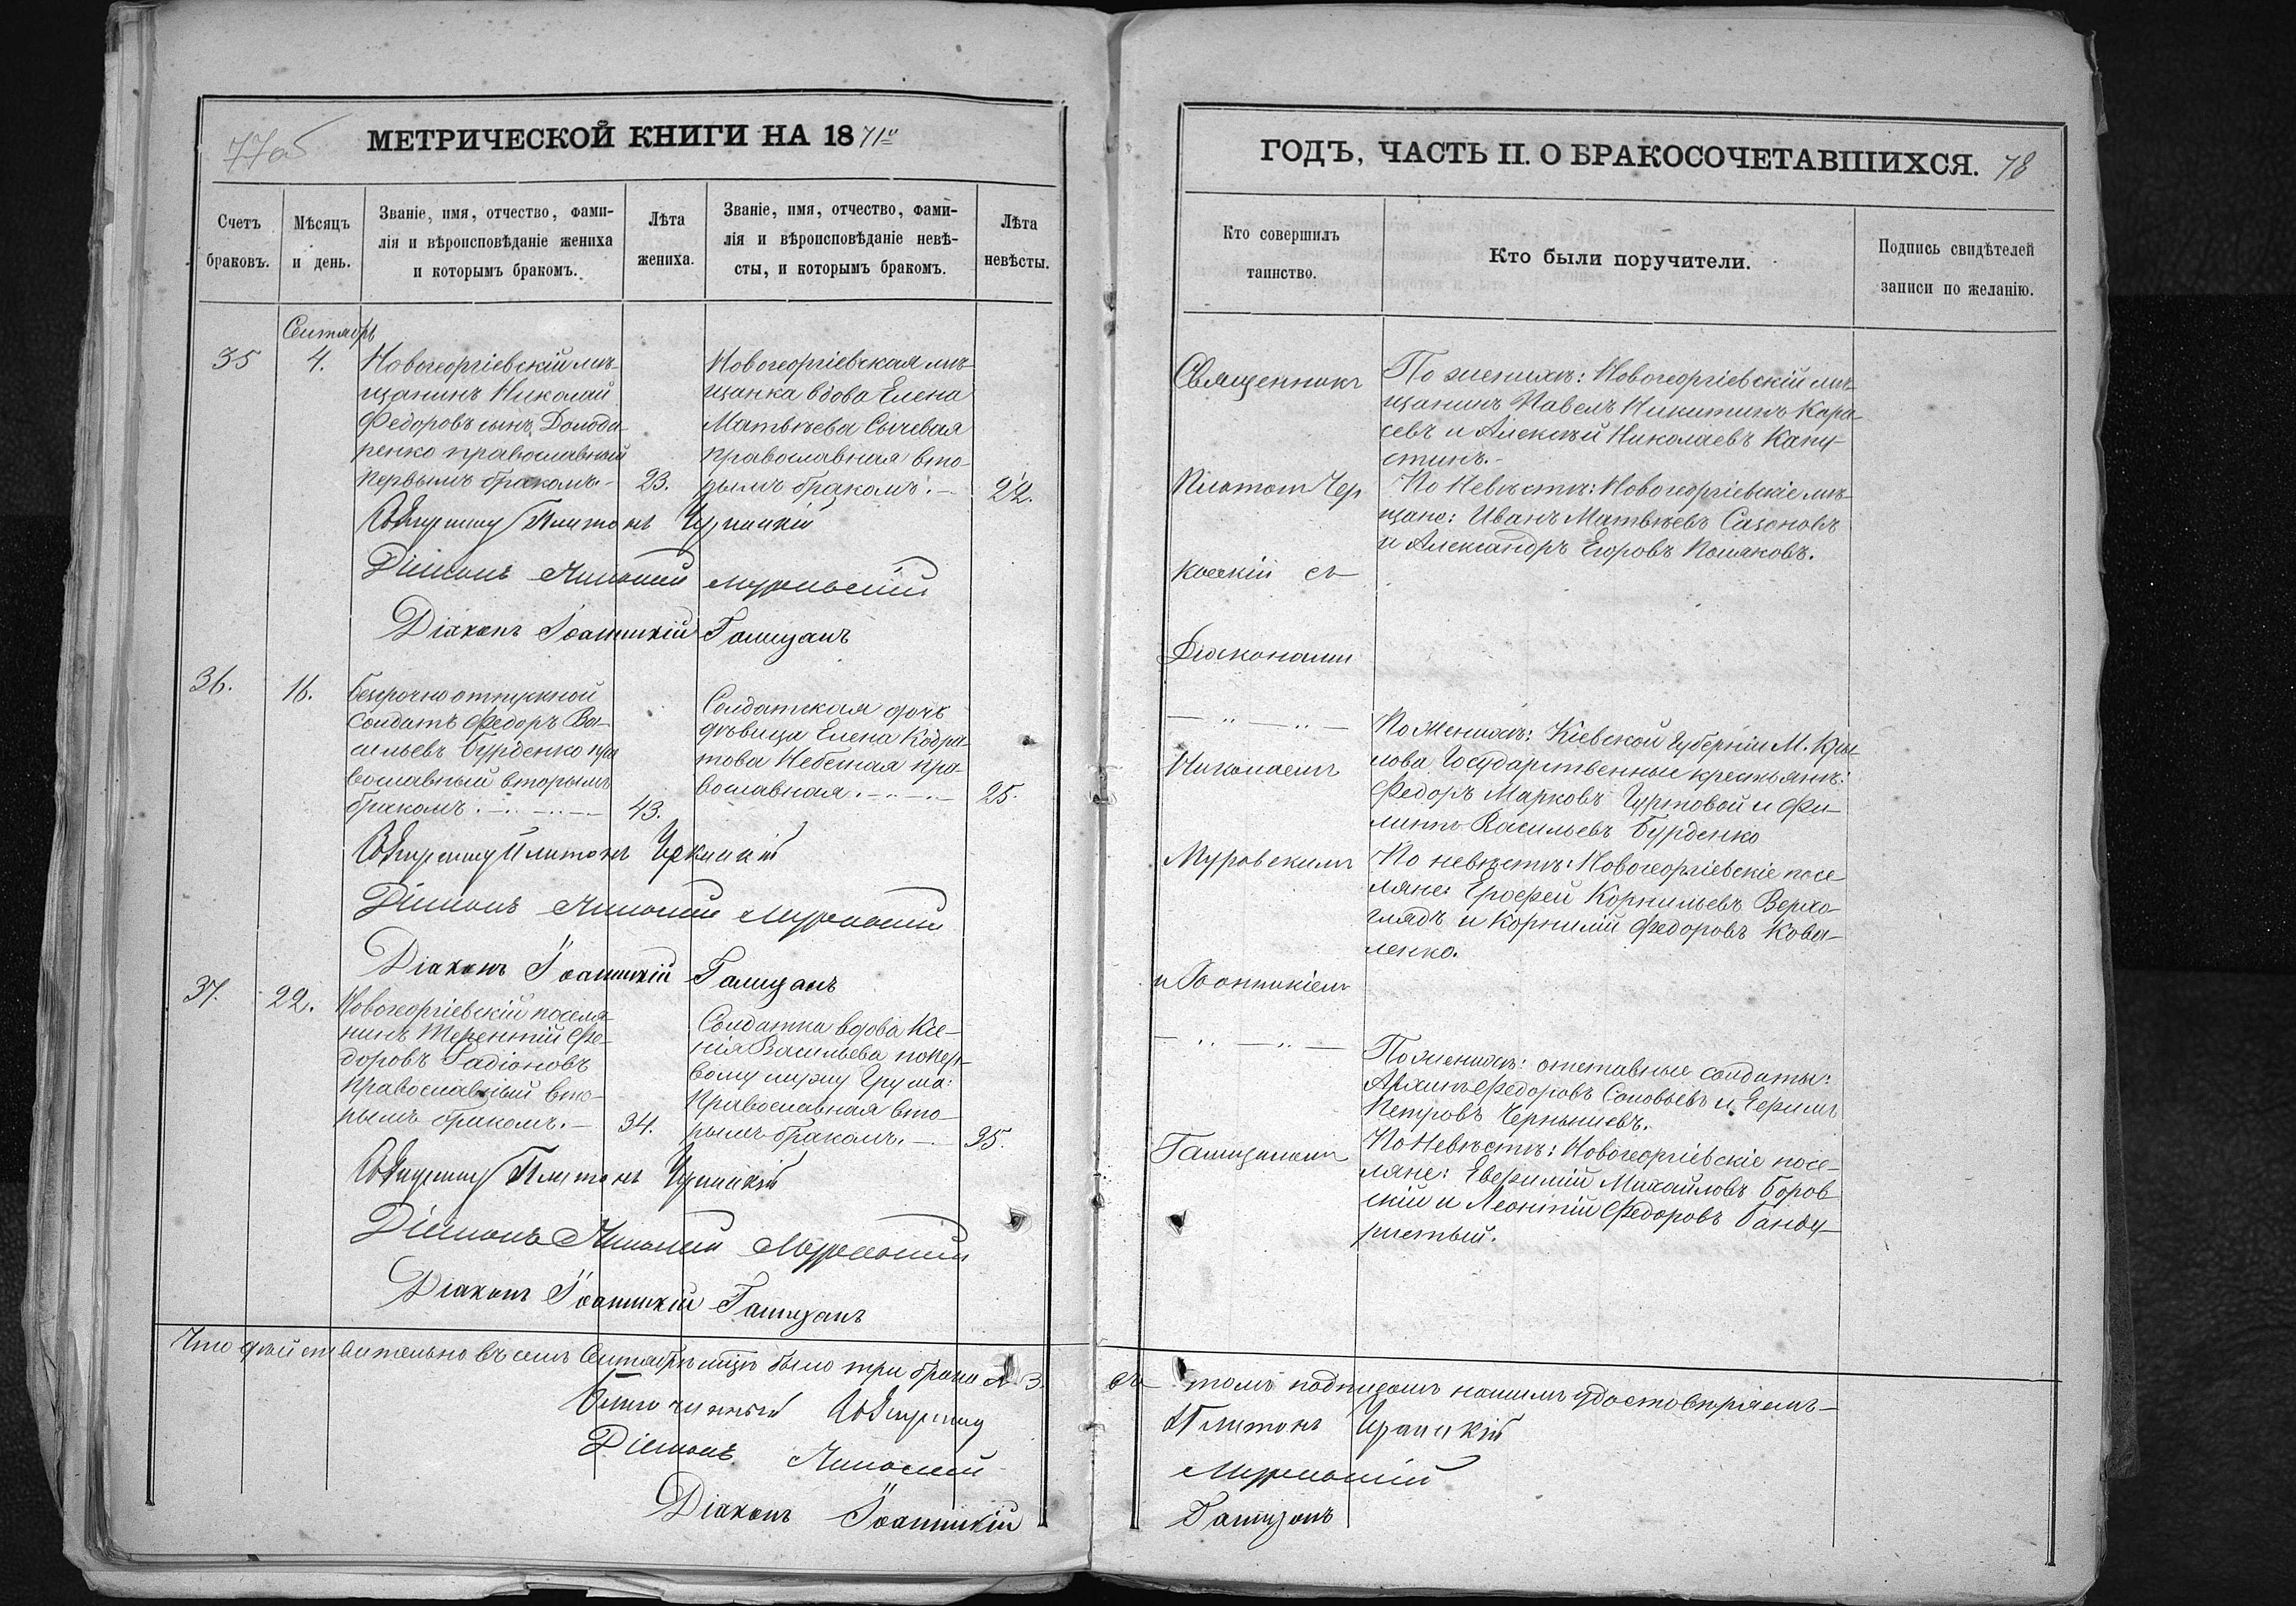 77об
МЕТРИЧЕСКОЙ КНИГИ НА 1871й
Счетъ браковъ.
Мѣсяцъ и день.
Званіе, имя, отчество, фами-
лія и вѣроисповѣданіе жениха
и которымъ бракомъ.
Лѣта жениха.
Званіе, имя, отчество, фами-
лія и вѣроисповѣданіе невѣ-
сты, и которымъ бракомъ.
Лѣта невѣсты.
Сентябрь
35
4.
Новогеоргіевскій мѣ-
щанинъ Николай
Федоровъ сынъ Долода-
ренко православный
первымъ бракомъ.-
23.
Новогеоргіевская мѣ-
щанка вдова Елена
Матвѣева Сычевая
православная вто-
рымъ бракомъ.-
22.
Платонъ
Діаконъ Николай Муровскій
Діаконъ Іоанникій Галицанъ
36.
16.
Безсрочно отпускной
Солдатъ Федоръ Ва-
сильевъ Бурденко пра
вославный вторымъ
бракомъ.
43.
Солдатская дочь
дѣвица Елена Кодра-
това Небесная пра-
вославная.
25.
Платонъ
Діаконъ Николай Муровскій
Діаконъ Іоанникій Галицанъ
37.
22.
Новогеоргіевскій поселя-
нинъ Терентій Фе-
доровъ Радіоновъ
Православный вто-
рымъ бракомъ.-
34.
Солдатка вдова Ксе-
нія Васильева по пер-
вому мужу Грума:
Православная вто-
рымъ бракомъ.-
35.
Платонъ
Діаконъ Николай Муровскій
Діаконъ Іоанникій Галицанъ
Что дѣйствительно въ семъ Сентябрѣ мцѣ было три брака 3.
Діаконъ Николай
Діаконъ Іоанникій
ГОДЪ, ЧАСТЬ II. О БРАКОСОЧЕТАВШИХСЯ. 78
Кто совершилъ таинство.
Кто были поручители.
Подпись свидѣтелей
записи по желанію.
Священникъ
Платонъ Чер
каскій съ
Діаконами
Николаемъ
Муровскимъ
и Іоаникіем
Галицаномъ
По женихѣ: Новогеоргіевскій мѣ-
щанинъ Павелъ Никитинъ Кара-
севъ и Алексѣй Николаевъ Капу-
стинъ.-
По Невѣстѣ: Новогеоргіевскіе мѣ-
щане: Иванъ Матвѣевъ Сазоновъ
и Александръ Егоровъ Поляковъ.
По Женихѣ: Кіевской Губерніи М. Кры
лова Государственные крестьяне:
Федоръ Марковъ Гуртовой и Фи-
липпъ Васильевъ Бурденко
По невѣстѣ: Новогеоргіевскіе посе
ляне: Ерофей Корнильевъ Верхо-
глядъ и Корнилій Федоровъ Кова-
ленко.
По женихѣ: отставные солдаты:
Архипъ Федоровъ Соловьевъ и Ефимъ
Петровъ Чернышевъ.
По Невѣстѣ: Новогеоргіевскіе посе-
ляне: Евфимій Михайловъ Боров
скій и Леонтій Федоровъ Банду-
ристый.
въ томъ подписомъ нашимъ удостовѣряемъ-
Платонъ
Муровскій
Галицанъ